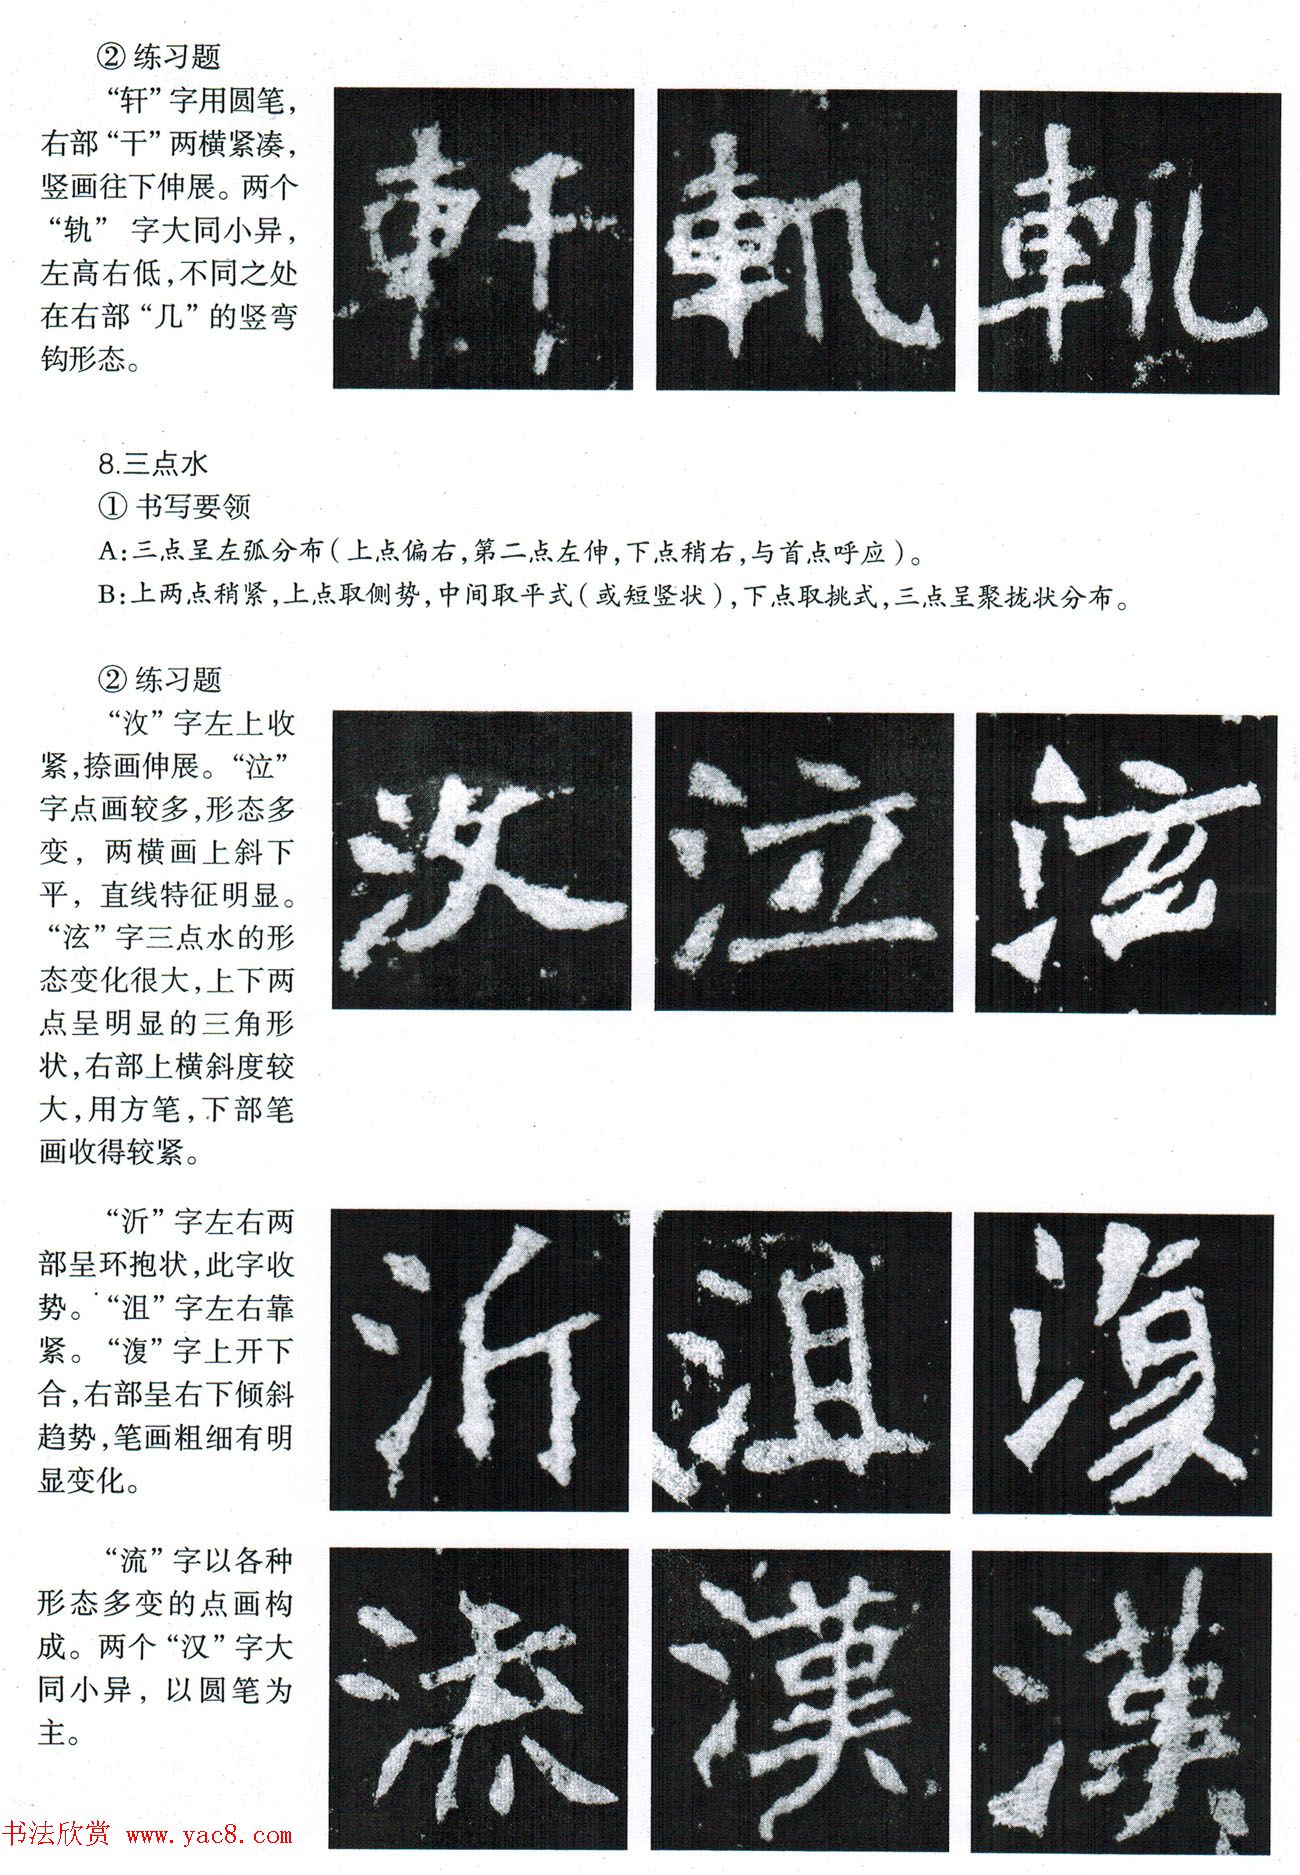 ② 练习题
“轩”字用圆笔，
右部“干”两横紧凑，
竖画往下伸展。两个
“轨” 字大同小异，
左高右低，不同之处
在右部“几”的竖弯
钩形态。
軒 軌 軌
8.三点水
① 书写要领
A：三点呈左弧分布（上点偏右，第二点左伸，下点稍右，与首点呼应）。
B：上两点稍紧，上点取侧势，中间取平式（或短竖状），下点取挑式，三点呈聚拢状分布。
② 练习题
“汝”字左上收
紧，捺画伸展。“泣”
字点画较多，形态多
变，两横画上斜下
平，直线特征明显。
“泫”字三点水的形
态变化很大，上下两
点呈明显的三角形
状，右部上横斜度较
大，用方笔，下部笔
画收得较紧。
汶 泣 泫
“沂”字左右两
部呈环抱状，此字收
势。“沮”字左右靠
紧。“澓”字上开下
合，右部呈右下倾斜
趋势，笔画粗细有明
显变化。
沂 沮 澓
“流”字以各种
形态多变的点画构
成。两个“汉”字大
同小异，以圆笔为
主。
流 漢 漢
书法欣赏 www.yac8.com